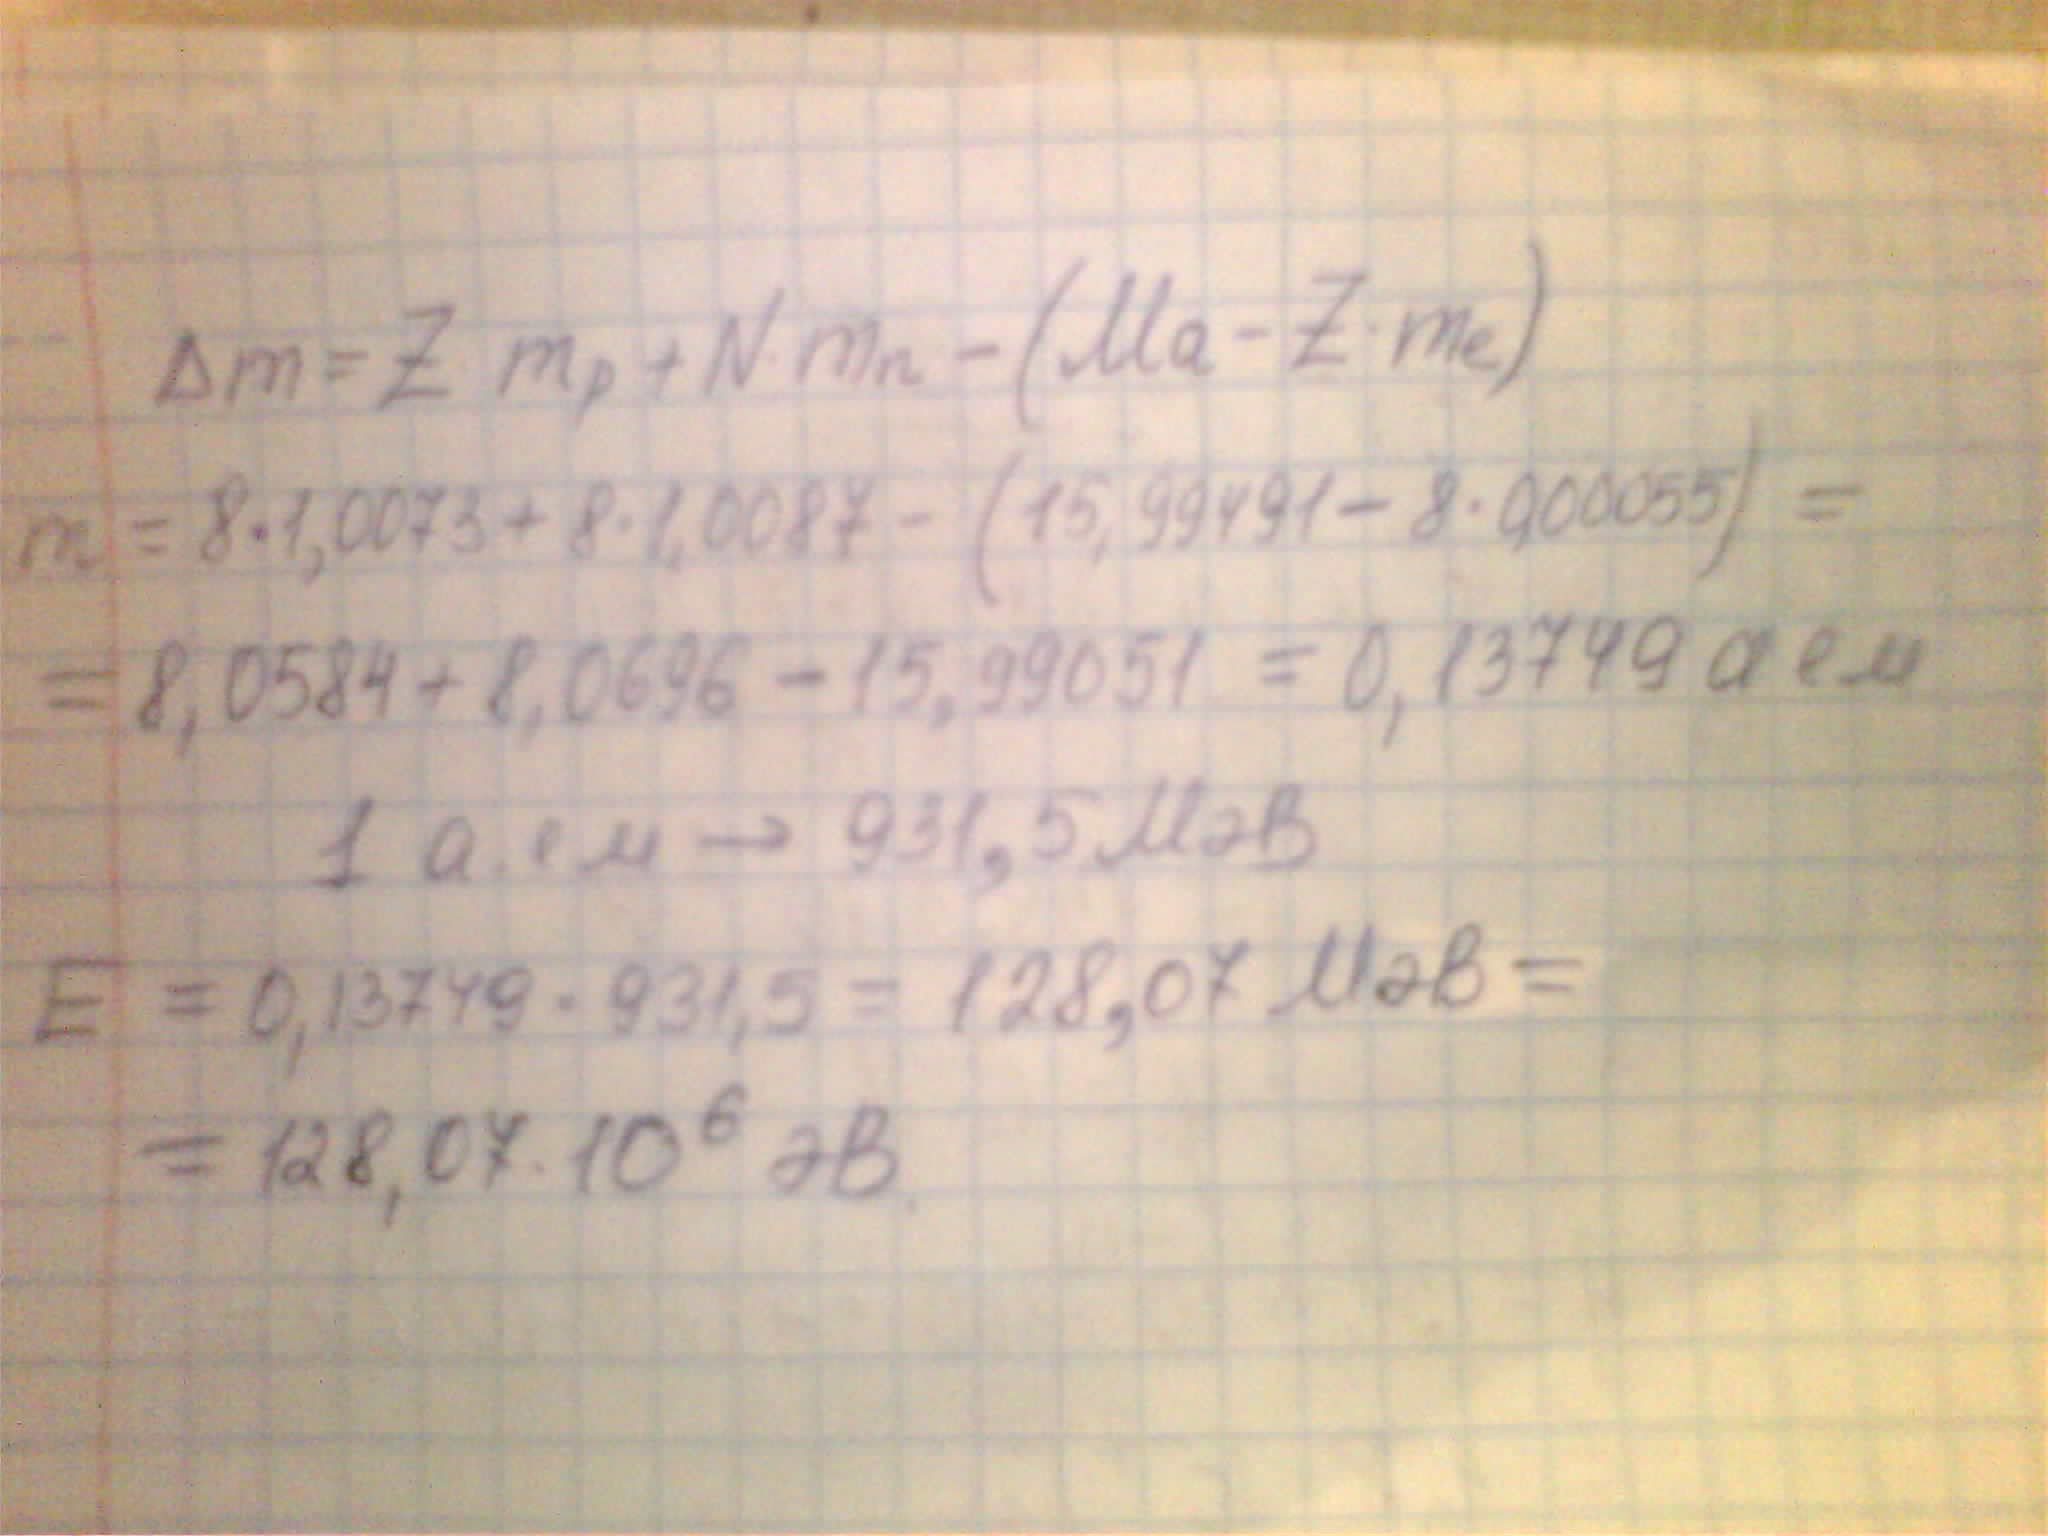 Δm = Z m_p + N · m_n - (Ma - Z · m_e)
m = 8 · 1,0073 + 8 · 1,0087 - (15,99491 - 8 · 0,00055) =
= 8,0584 + 8,0696 - 15,99051 = 0,13749 а е м
1 а. е м → 931,5 МэВ
E = 0,13749 · 931,5 = 128,07 МэВ =
= 128,07 · 10⁶ эВ.